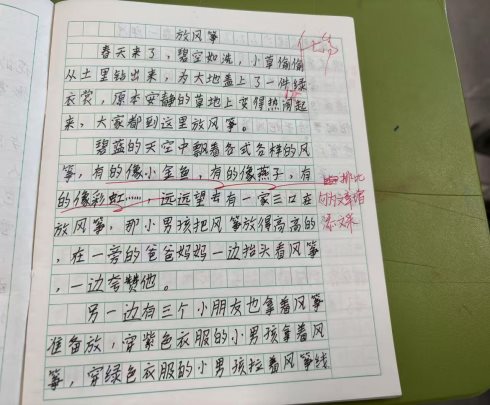 放风筝
春天来了，碧空如洗，小草偷偷
从土里钻出来，为大地盖上了一件绿
衣裳，原本安静的草地上变得热闹起
来，大家都到这里放风筝。
碧蓝的天空中飘着各式各样的风
筝，有的像小金鱼，有的像燕子，有
的像彩虹……，远远望去有一家三口在
放风筝，那小男孩把风筝放得高高的
，在一旁的爸爸妈妈一边抬头看风筝
，一边夸赞他。
另一边有三个小朋友也拿着风筝
准备放，穿紫色衣服的小男孩拿着风
筝，穿绿色衣服的小男孩拉着风筝线
排比
句为文章增
添文采